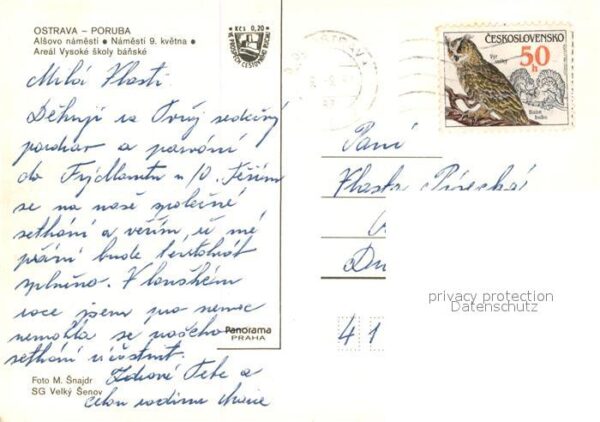 OSTRAVA – PORUBA
Alšovo náměstí • Náměstí 9. května •
Areál Vysoké školy báňské
Kčs 0,20
VE PROSPĚCH CESTOVNÍHO RUCHU
OSTRAVA
ČESKOSLOVENSKO
50 h
Výr
Milá Vlasti.
Děkuji za Tvůj srdečný
pozdrav a pozvání
do Frýdlantu n/O. Těším
se na naše společné
setkání a věřím, že mé
přání bude tentokrát
splněno. V loňském
roce jsem pro nemoc
nemohla se našeho
setkání účastnit.
Zdraví Tebe a
celou rodinu
Paní
Vlasta
Du
41
Panorama
PRAHA
Foto M. Šnajdr
SG Velký Šenov
privacy protection
Datenschutz